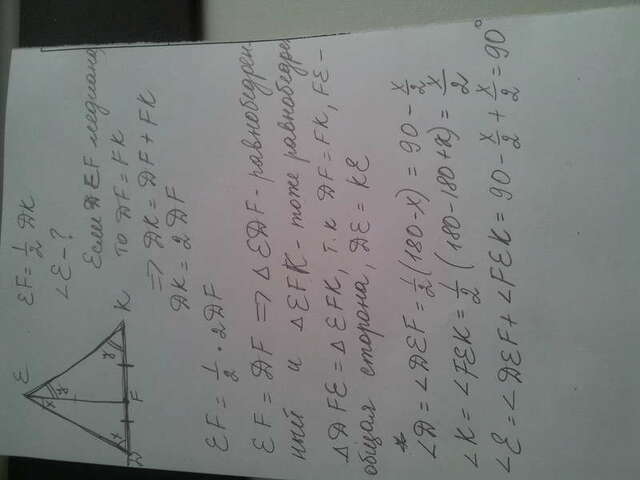 E
D
F
K
x
x
EF = 1/2 DK
∠E - ?
Если EF медиана
то DF = FK
=> DK = DF + FK
DK = 2DF
EF = 1/2 · 2DF
EF = DF => △EDF - равнобедрен
ный и △EFK - тоже равнобедрен
△DFE = △EFK, т.к DF = FK, FE -
общая сторона, DE = KE
∠D = ∠DEF = 1/2 (180 - x) = 90 - x/2
∠K = ∠FEK = 1/2 (180 - 180 + x) = x/2
∠E = ∠DEF + ∠FEK = 90 - x/2 + x/2 = 90°